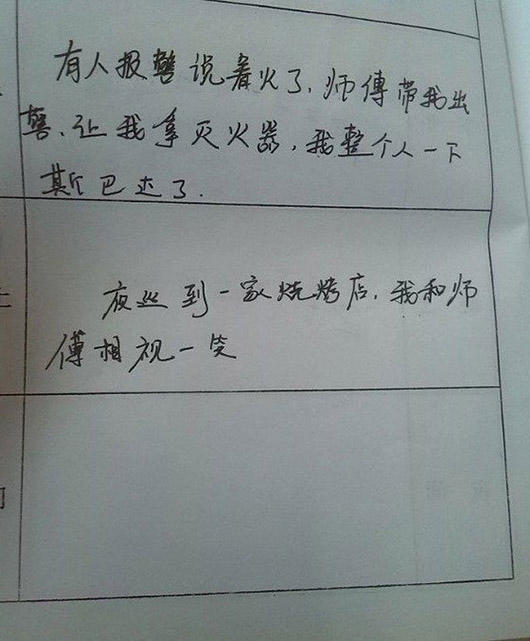 有人报警说着火了，师傅带我出
警、让我拿灭火器，我整个人一下
斯巴达了.
夜巡到一家烧烤店，我和师
傅相视一笑